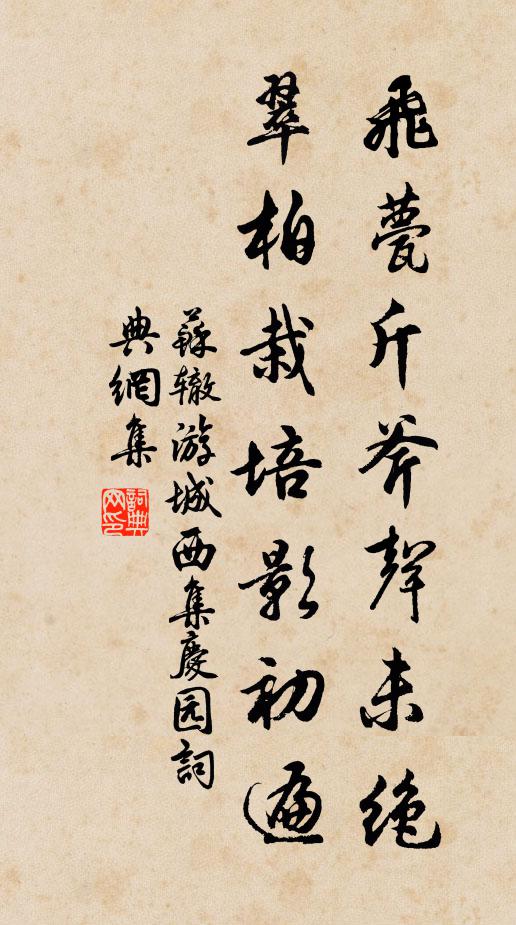 飛甍斤斧聲未絶
翠柏栽培影初遍
蘇辙游城西集慶园詞
典網集
詞典網印